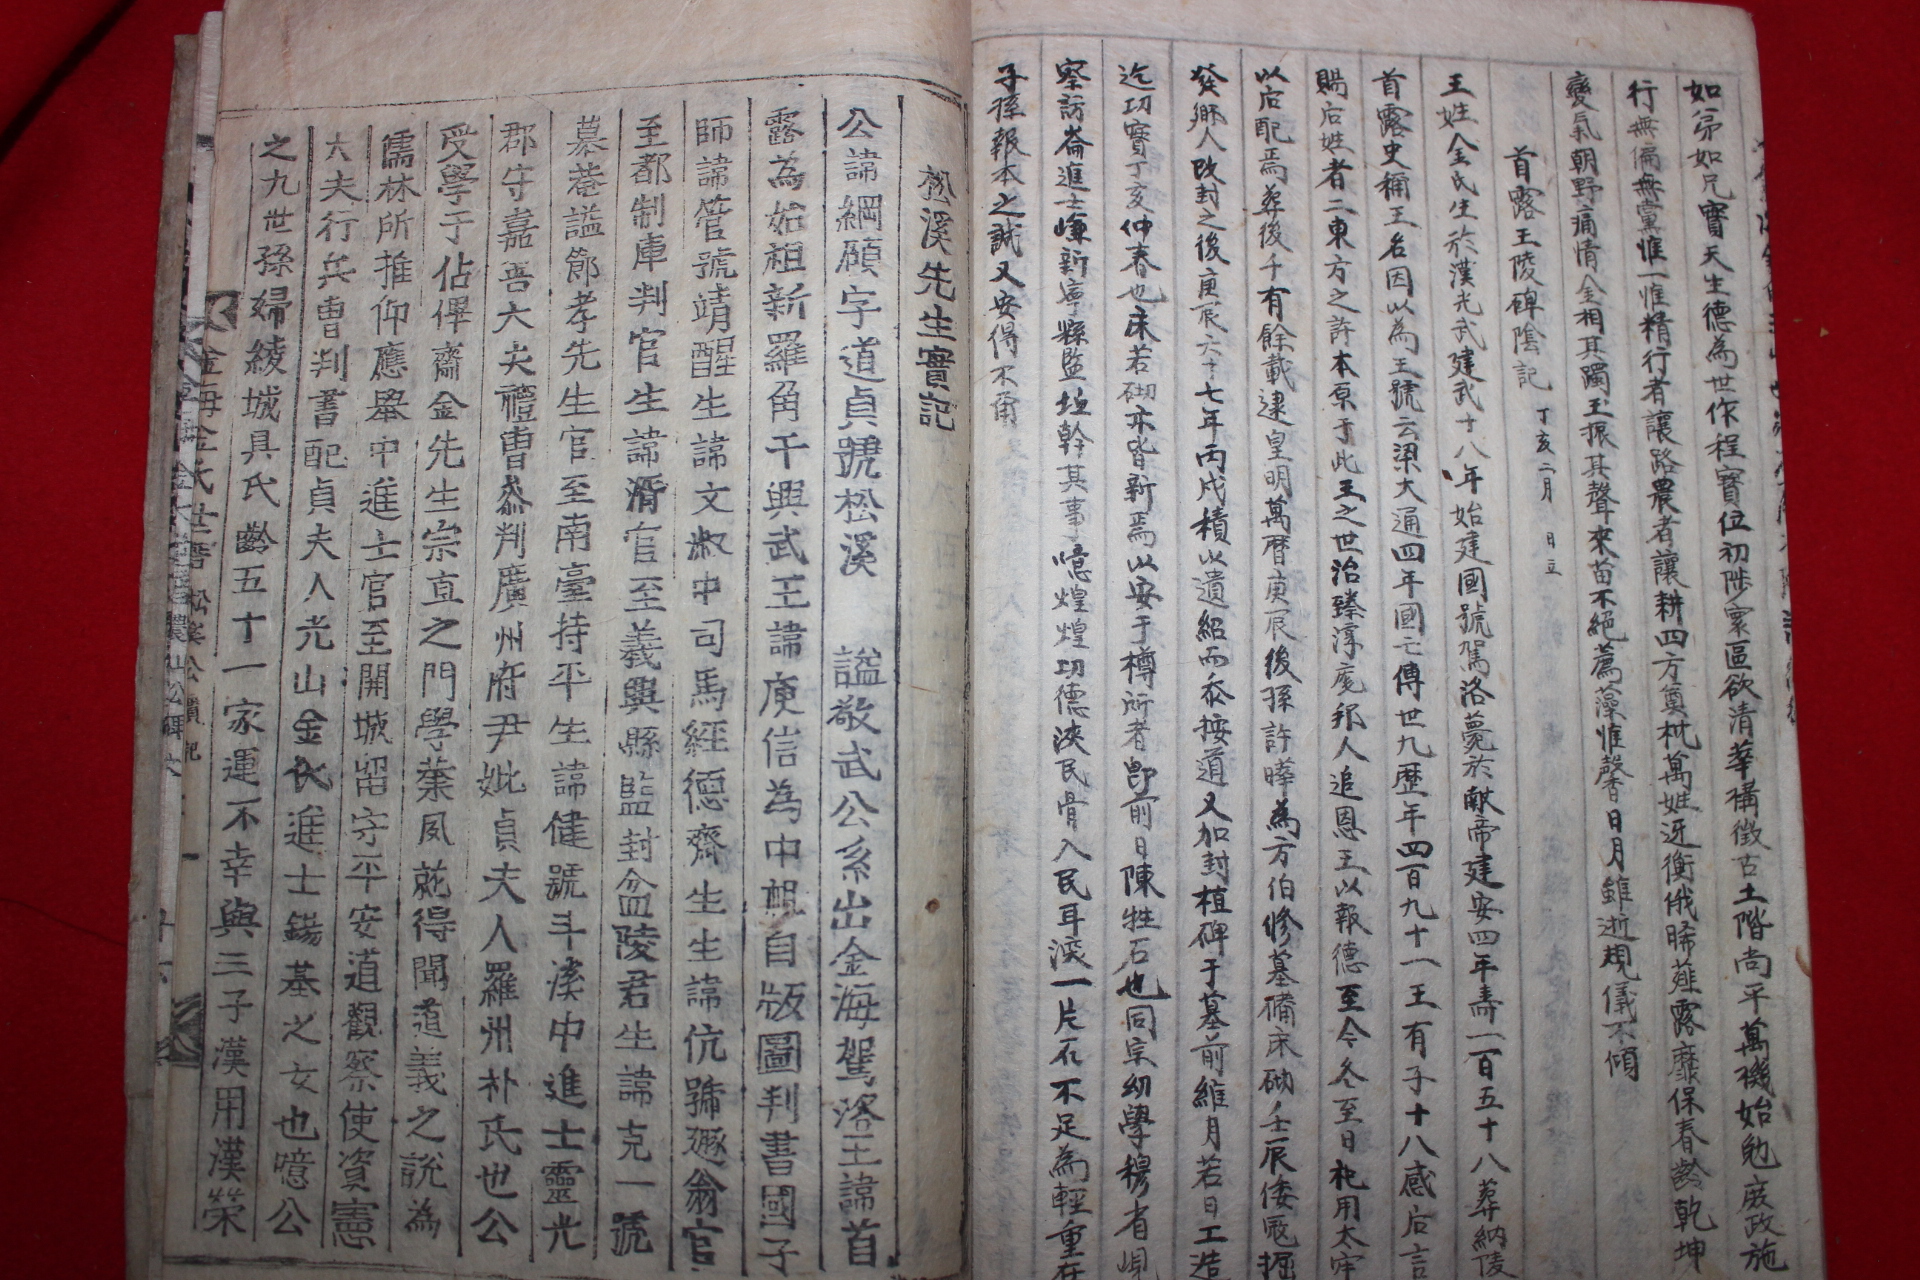 如弟如兄寶天生德為世作程寶位初陟寰區欲清華構徵古土階尚平萬機始勉庶政施
行無偏無黨惟一惟精行者讓路農者讓耕四方奠枕萬姓迓衡俄晞薤露靡保春齡乾坤
變氣朝野痛情金相其躅玉振其聲來苗不絕薦藻惟馨日月雖逝規儀不傾
首露王陵碑陰記 丁亥二月 日立
王姓金氏生於漢光武建武十八年始建國號駕洛薨於献帝建安四年壽一百五十八葬納陵
首露史稱王名因以為王號云梁大通四年國亡傳世九歷年四百九十一王有子十八感后言
賜后姓者二東方之許本原于此王之世治臻淳庬邦人追恩王以報德至今冬至日祀用太牢
以后配焉葬後千有餘載逮皇明萬曆庚辰後孫許曄為方伯修墓備床砌壬辰倭寇掘
發鄉人改封之後庚辰六十七年丙戌積以遺紹而忝按道又加封植碑于墓前維月若日工造
迄功實丁亥仲春也床若砌亦皆新焉以安于樽所者即前日陳牲石也同宗幼學穆省峴
察訪崙進士㠍新寧縣監垣幹其事噫煌煌功德浹民骨入民耳深一片石不足為輕重在
子孫報本之誠又安得不爾
松溪先生實記
公諱綱願字道貞號松溪 謚敬武公系出金海駕洛王諱首
露為始祖新羅角干興武王諱庾信為中祖自版圖判書國子
師諱管號靖醒生諱文淑中司馬經德齋生生諱伉號遯翁官
至都制庫判官生諱湑官至義興縣監封盆陵君生諱克一號
慕菴謚節孝先生官至南臺持平生諱健號斗溪中進士靈光
郡守嘉善大夫禮曹叅判廣州府尹妣貞夫人羅州朴氏也公
受學于佔俾齋金先生宗直之門學業夙就得聞道義之說為
儒林所推仰應舉中進士官至開城留守平安道觀察使資憲
大夫行兵曹判書配貞夫人光山金氏進士錫基之女也噫公
之九世孫婦綾城具氏齡五十一家運不幸與三子漢用漢榮
金海金氏世譜 松溪公實記